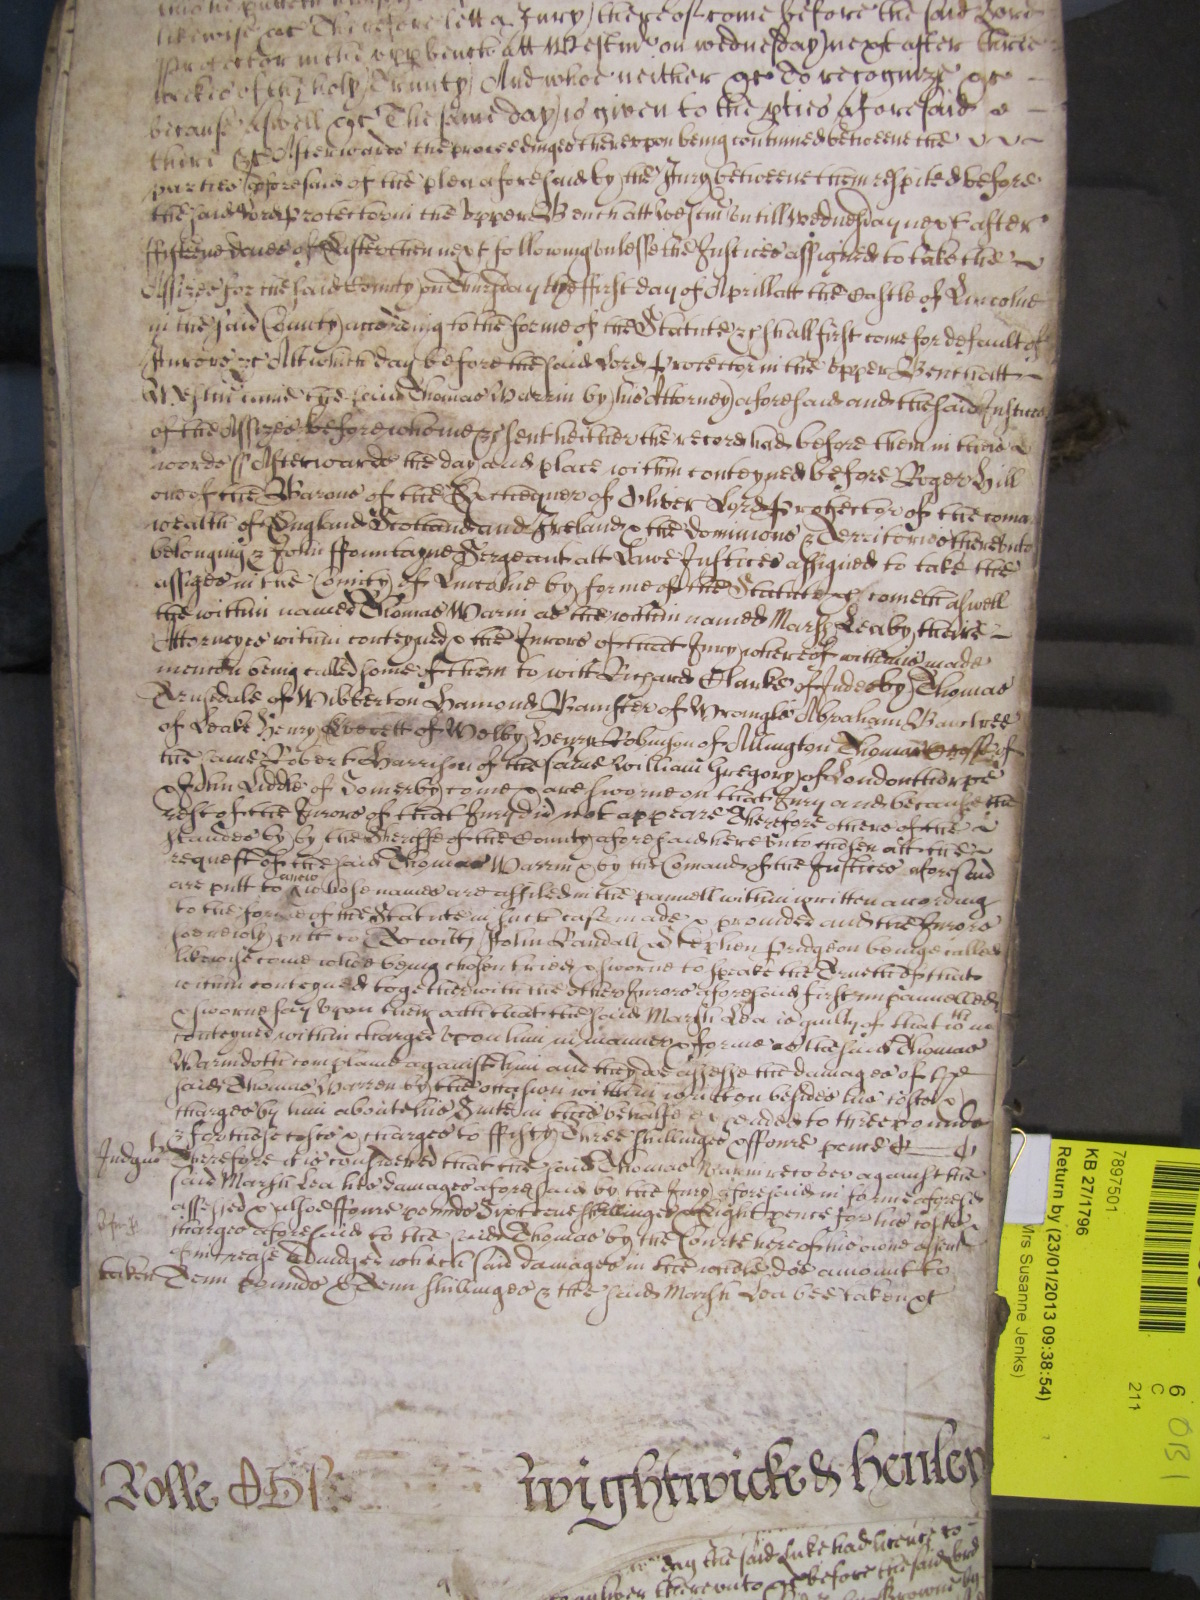 likewise &c Therefore lett a Jury thereof come before the said Lord
Protector in the upper bench att Westm on wednesday next after three
weekes of the holy Trinity And whoe neither &c To recognize &c
because Aswell &c The same day is given to the pties aforesaid
there &c Afterwards the proceedinges thereupon being continued betweene the
parties aforesaid of the plea aforesaid by the Jury betweene them respited before
the said Lord Protector in the Upper Bench att Westm untill Wednesday next after
fifteene dayes of Easter then next following unlesse the Justices assigned to take the
Assizes for the said County on Thursday the first day of Aprill att the Castle of Lincolne
in the said County according to the forme of the Statute &c shall first come for default of
Jurors &c Att which day before the said Lord Protector in the upper Bench att
Westm came the said Thomas Warrin by his Attorney aforesaid and the said Justices
of the Assizes before whome &c sent hether the record had before them in theis
words ss Afterwards the day and place within conteyned before Roger Hill
one of the Barons of the Exchequer of Oliver Lord Protector of the comon
wealth of England Scotland and Ireland & the dominions & Territories thereunto
belonging & John ffountayne Sergeant att Lawe Justices assigned to take the
assizes in the County of Lincolne by forme of the Statute &c cometh aswell
the within named Thomas Warrin as the within named Marsh Lea by theire
Attorneyes within conteyned & the Jurors of that Jury whereof within is made
mencon being called some of them to witt Richard Clarke of Thomas
Truesdale of Wibberton Hamond Banister of Wrangle Abraham
of Leake Henry Everett of Welby Henry Robinson of Allington Thomas of
the same Robert Harrison of the same William Gregory of Londonthorpe
& John Liddle of Somerby come & are sworne on that Jury and because the
rest of the Jurors of that Jury did not appeare Therefore others of the
standers by by the Sheriffe of the County aforesaid hereunto chosen att the
request of the said Thomas Warrin & by the Comand of the Justices aforesaid
are putt to anew whose names are affiled in the pannell within written according
to the forme of the Statute in such case made & provided and the Jurors
soe newly putt to To witt John Randall & Stephen Pridgeon being called
likewise come whoe being chosen tried & sworne to speake the Trueth of that
within conteyned together with the other Jurors aforesaid first impannelled
& sworne say upon their oath that the said Marsh Lea is guilty of that wthin
conteyned within charged upon him in manner & forme as the said Thomas
Warrin doth complaine against him and they doe assesse the damages of the
said Thomas Warren by the occasion within written besides his costes &
charges by him aboute his Suite in this behalfe expended to three pounds
& for those costs & charges to ffifty Three shillinges & ffoure pence
Judgmt Therefore it is considered that the said Thomas Warrin recover against the
said Marsh Lea his damages aforesaid by the Jury aforesaid in forme aforesaid
assessed & alsoe ffoure pounds Sixteene shillinges & Eight pence for his costs &
charges aforesaid to the said Thomas by the Courte here of his owne assent
of increase adiudged which said damages in the whole doe amount to
taken Tenn pounds & Tenn shillinges & the said Marsh Lea bee taken &c
Rolle
Wightwicke & Henley
day the said Luke had licence to
to answer thereunto &c before the said Lord
Browne by
7897501
KB 27/1796
Return by (23/01/2013 09:38:54)
Mrs Susanne Jenks)
6
C
211